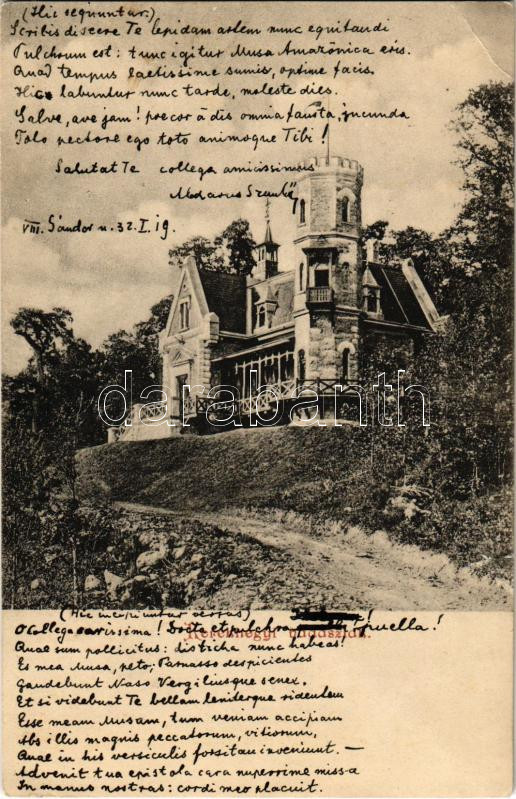 (Hic sequuntur.)
Scribis discere Te lepidam artem nunc equitandi
Pulchrum est: tunc igitur Musa Amazonica eris.
Quod tempus laetissime sumis, optime facis.
Hic labuntur nunc tarde, moleste dies.
Salve, ave jam! precor à dis omnia fausta, jucunda
Toto pectore ego toto animoque Tibi!
Salutat Te collega amicissimus
VIII. Sándor u. 32. I. 19.
darabanth
(Hic incipiuntur versus)
O Collega carissima! Docta et pulchra puella!
hegyi vadászlak.
Quae sum pollicitus: disticha nunc habeas!
Es mea Musa, peto; Parnasso despicientes
Gaudebunt Naso Vergiliusque senex.
Et si videbunt Te bellam leniterque ridentem
Esse meam Musam, tum veniam accipiam
Abs illis magnis peccatorum, vitiorum,
Quae in his versiculis forsitan inveniunt. —
Advenit tua epistola cara nuperrime missa
In manus nostras: cordi meo placuit.